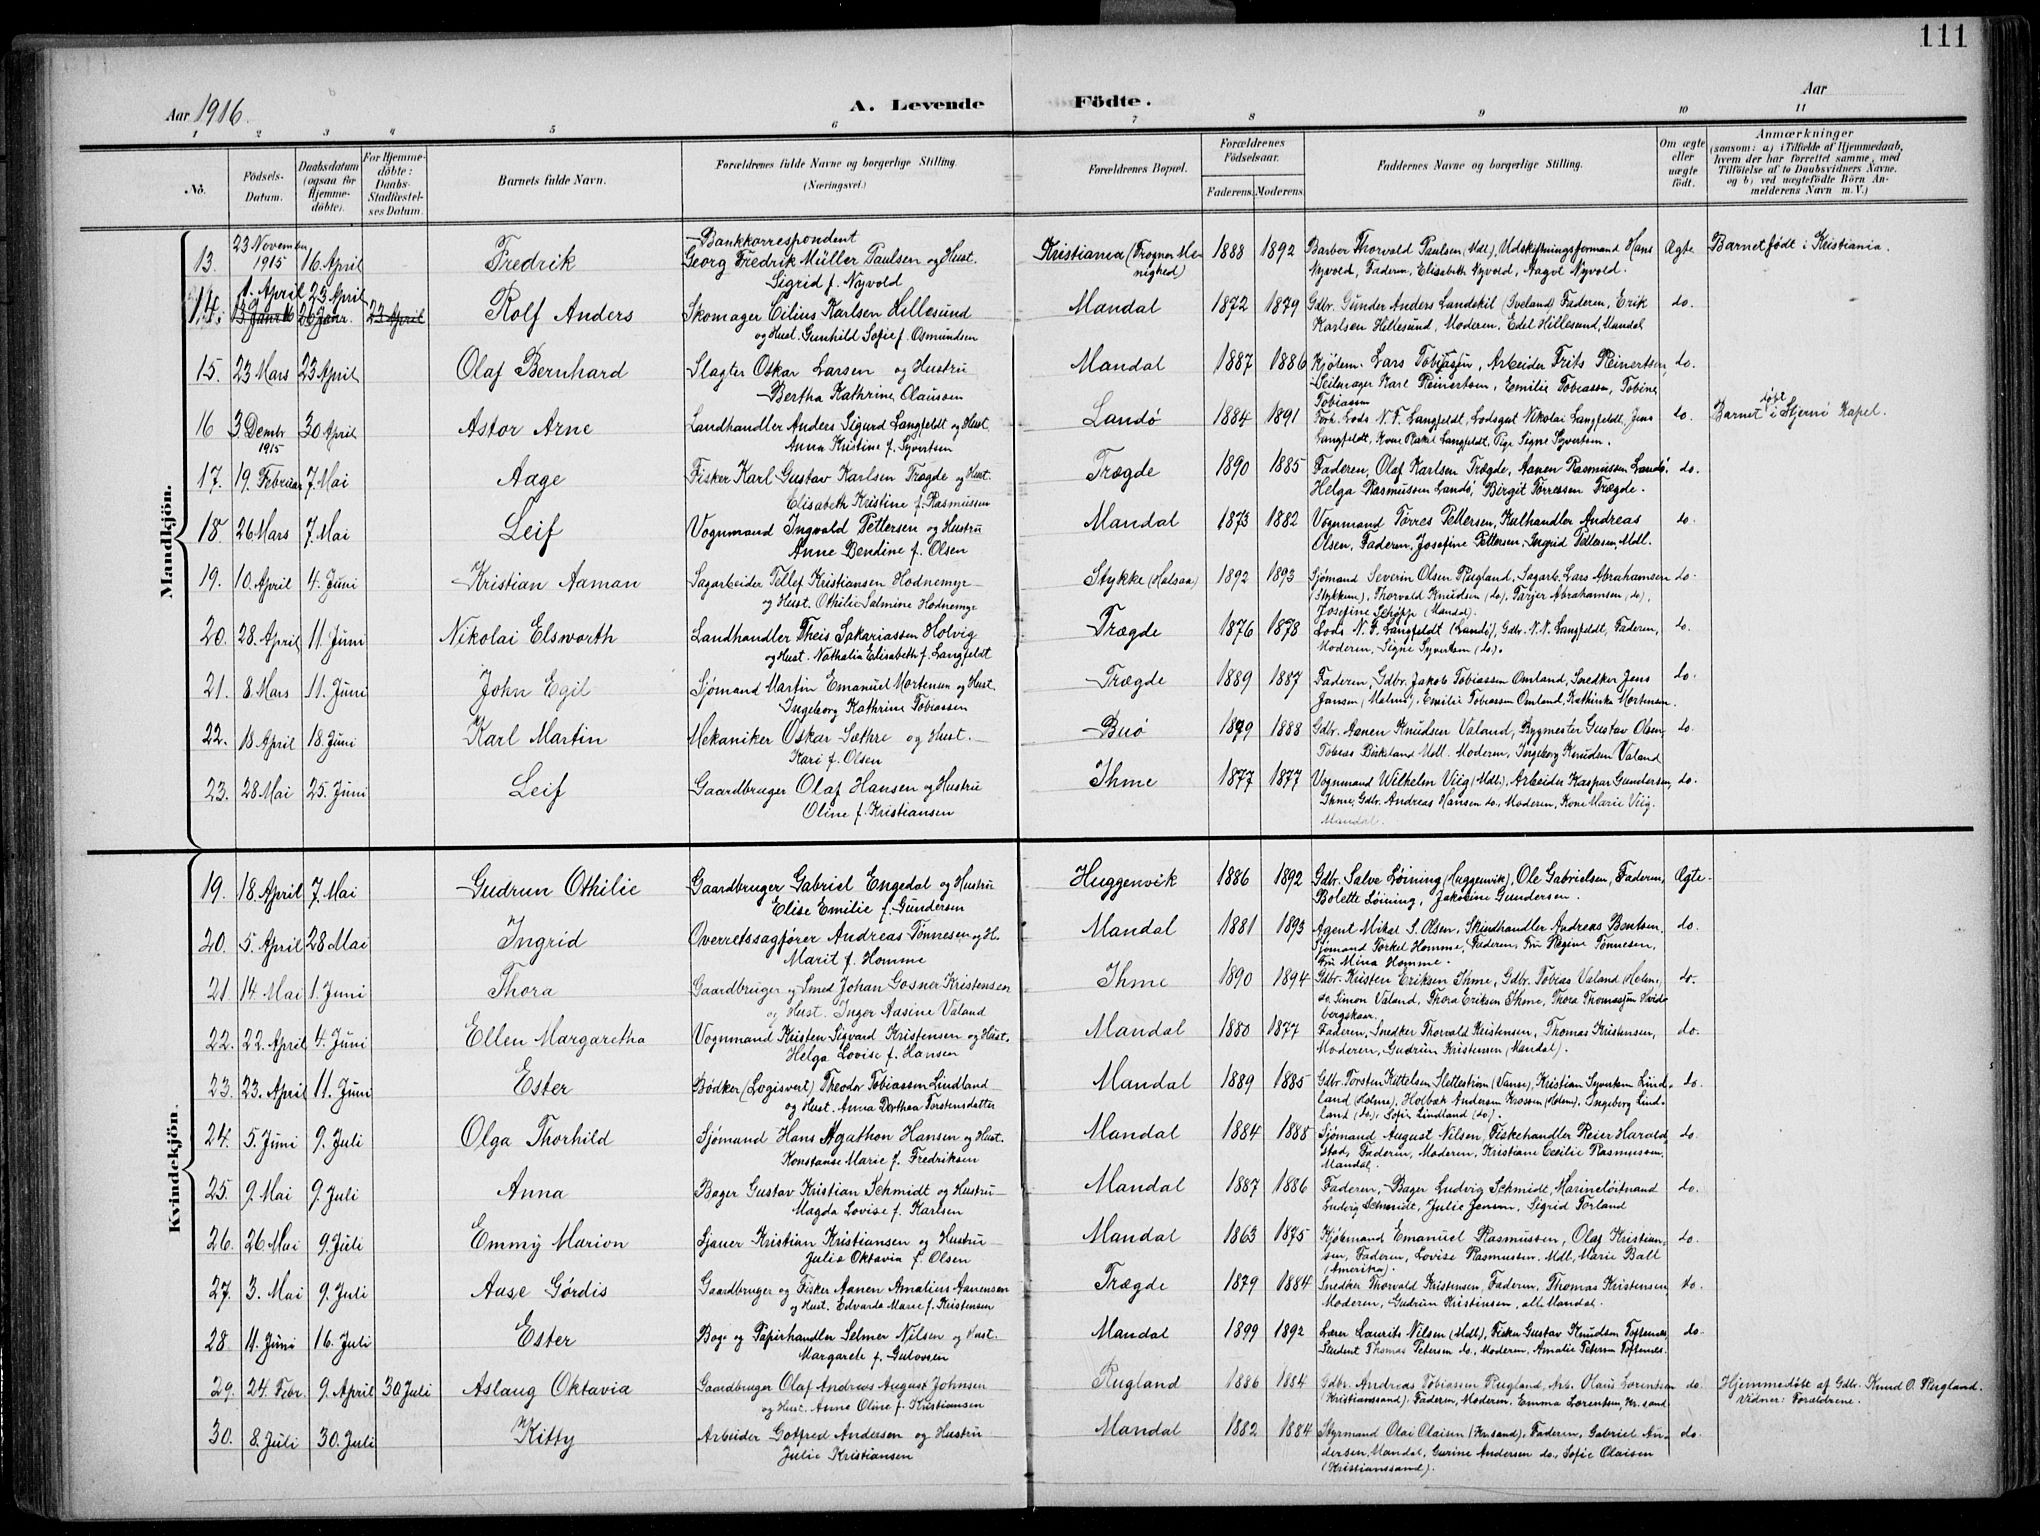 111
Aar 1916.
A. Levende Födte.
Aar
1 2 3 4 5 6 7 8 9 10 11
No.
Fødsels-Datum.
Daabsdatum (ogsaa for Hjemmedöbte).
For Hjemmedöbte: Daabs-Stadfæstelses Datum.
Barnets fulde Navn.
Forældrenes fulde Navne og borgerlige Stilling. (Næringsvei.)
Forældrenes Bopæl.
Forældrenes Födselsaar.
Faderens. Moderens.
Faddernes Navne og borgerlige Stilling.
Om ægte eller uægte födt.
Anmærkninger
(saasom: a) i Tilfælde af Hjemmedaab, hvem der har forrettet samme, med Tilföielse af to Daabsvidners Navne. og b) ved uægtefödte Börn Anmelderens Navn m. V.)
Mandkjön.
13. 23 November 1915 16 April Fredrik Bankkorrespondent Georg Fredrik Müller Paulsen og Hust. Sigrid f. Nyvold Kristiania (Frogner Menighed) 1888 1892 Barber Thorvald Paulsen (Mdl), Udskiftningsformand Hans Nyvold, Faderen, Elisabeth Nyvold, Aagot Nyvold. Ægte Barnet født i Kristiania.
14. 1. April 23 April 13 Januar 26 Januar. 23 April Rolf Anders Skomager Cilius Karlsen Hillesund og Hust. Gunhild Sofie f. Osmundsen Mandal 1872 1879 Gdbr. Gunder Anders Landskil (Iveland) Faderen, Erik Karlsen Hillesund, Moderen, Edel Hillesund, Mandal do.
15. 23 Mars 23 April Olaf Bernhard Slagter Oskar Larsen og Hustru Bertha Kathrine Olausen Mandal 1887 1886 Kjølem. Lars Tobiasen, Arbeider Frits Reinertsen, Seilmager Karl Reinertsen, Emilie Tobiassen, Tobine Tobiassen do.
16 3 Dembr 1915 30 April Astor Arne Landhandler Anders Sigurd Langfeldt og Hust. Anna Kristine f. Syvertsen Landø 1884 1891 Forh. Lods N. F. Langfeldt, Lodsgut Nikolai Langfeldt, Jens Langfeldt, Kone Rakel Langfeldt, Pige Signe Syvertsen. do. Barnet døbt i Hjernø Kapel.
17. 19. Februar 7 Mai Aage Fisker Karl Gustav Karlsen Trægde og Hust. Elisabeth Kristine f. Rasmussen Trægde 1890 1885 Faderen, Olaf Karlsen Trægde, Aanen Rasmussen Landø, Helga Rasmussen Landø, Birgit Torresen Trægde. do.
18. 26 Mars 7. Mai Leif Vognmand Ingvald Pettersen og Hustru Anne Bendine f. Olsen Mandal 1873 1882 Vognmand Torres Pettersen, Kulhandler Andreas Olsen, Faderen, Josefine Pettersen, Ingrid Pettersen, Mdl. do.
19. 10. April 4. Juni Kristian Aaman Sagarbeider Tellef Kristiansen Hodnemyr og Hust. Othilie Salmine Hodnemyr Stykke (Halsaa) 1892 1893 Sjømand Severin Olsen Rugland, Sagarb. Lars Abrahamsen (Stykkem), Thorvald Knudsen (do), Tarjer Abrahamsen (do), Josefine Schøpp (Mandal). do.
20. 28. April 11. Juni Nikolai Elsworth Landhandler Theis Sakariassen Holvig og Hust. Nathalia Elisabeth f. Langfeldt Trægde 1876 1878 Lods N. F. Langfeldt (Landø), Gdbr. N. N. Langfeldt, Faderen, Moderen, Signe Syvertsen (do.). do.
21. 8. Mars 11. Juni John Egil Sjømand Martin Emanuel Mortensen og Hust. Ingeborg Kathrine Tobiassen Trægde 1889 1887 Faderen, Gdbr. Jakob Tobiassen Omland, Snedker Jens Jansen (Malmø), Emilie Tobiassen Omland, Kathinka Mortensen. do.
22. 18 April 18. Juni Karl Martin Mekaniker Oskar Sæthre og Hust. Kari f. Olsen Buø 1879 1888 Gdbr. Aanen Knudsen Valand, Bygmester Gustav Olsen, Tobias Birkeland Mdl. Moderen, Ingeborg Knudsen Valand do.
23. 28 Mai 25. Juni Leif Gaardbruger Olaf Hansen og Hustru Oline f. Kristiansen Ihme 1877 1877 Vognmand Wilhelm Viig (Mdl.), Arbeider Kaspar Gundersen, Ihme, Gdbr. Andreas Hansen do., Moderen, Kone Marie Viig. Mandal. do.
Kvindekjön.
19. 18 April 7 Mai Gudrun Othilie Gaardbruger Gabriel Engedal og Hustru Elise Emilie f. Gundersen Huggenvik 1886 1892 Gdbr. Salve Løining (Huggenvik), Ole Gabrielsen, Faderen, Bolette Løining, Jakobine Gundersen. Ægte
20. 5. April 28 Mai Ingrid Overretssagfører Andreas Tønnesen og H. Marit f. Homme Mandal 1881 1893 Agent Mikal S. Olsen, Skindhandler Andreas Bentsen, Sjømand Torkel Homme, Faderen, Fru Regine Tønnesen, Fru Mina Homme. do.
21 14 Mai 1. Juni Thora Gaardbruger og Smed Johan Gosner Kristensen og Hust. Inger Aasine Valand Ihme 1890 1894 Gdbr. Kristen Eriksen Ihme, Gdbr. Tobias Valand (Holme), do. Simon Valand, Thora Eriksen Ihme, Thora Thomassen Hvidbergskaar. do.
22. 22. April 4. Juni Ellen Margaretha Vognmand Kristen Sigvard Kristensen og Hust. Helga Lovise f. Hansen Mandal 1880 1877 Faderen, Snedker Thorvald Kristensen, Thomas Kristensen, Moderen, Gudrun Kristensen (Mandal). do.
23. 23. April 11. Juni Ester Bødker (Logisvert) Theodor Tobiassen Lindland og Hust. Anna Dorthea Torstensdatter Mandal 1889 1885 Gdbr. Torsten Kittelsen Slettestrøm (Vanse), Kristian Syvertsen Lindland (Holme), Holbæk Andersen Krossen (Holme), Ingeborg Lindland (do.), Sofie Lindland (do.). do.
24. 5. Juni 9. Juli Olga Thorhild Sjømand Hans Agathon Hansen og Hust. Konstanse Marie f. Fredriksen Mandal 1884 1888 Sjømand August Nilsen, Fiskehandler Reier Haraldstad, Faderen, Moderen, Kristiane Cecilie Rasmussen. Mandal. do.
25. 9. Mai 9. Juli Anna Bager Gustav Kristian Schmidt og Hustru Magda Lovise f. Karlsen Mandal 1887 1886 Faderen, Bager Ludvig Schmidt, Marineløitnand Ludvig Schmidt, Julie Jensen, Sigrid Torland do.
26. 26. Mai 9. Juli Emmy Marion Sjauer Kristian Kristiansen og Hustru Julie Oktavia f. Olsen Mandal 1863 1875 Kjøbmand Emanuel Rasmussen, Olaf Kristiansen, Faderen, Lovise Rasmussen. Mdl, Marie Ball (Amerika). do.
27. 3. Mai 9. Juli Aase Gørdis Gaardbruger og Fisker Aanen Amalius Aanensen og Hust. Edvarda Marie f. Kristensen Trægde 1879 1884 Snedker Thorvald Kristensen, Faderen, Thomas Kristensen, Moderen, Gudrun Kristensen, alle Mandal. do.
28 11. Juni 16. Juli Ester Bog og Papirhandler Selmer Nilsen og Hust. Margarete f. Gulovsen Mandal 1899 1892 Lærer Laurits Nilsen (Mdl), Fisker Gustav Knudsen Toftenes, Student Thomas Petersen do., Moderen, Amalie Petersen Toftenes. do.
29. 24. Febr. 9. April 30 Juli Aslaug Oktavia Gaardbruger Olaf Andreas August Johnsen og Hust. Anne Oline f. Kristiansen Rugland 1886 1884 Gdbr. Andreas Tobiassen Rugland, Arb. Olaus Lorentsen (Kristianssand), Faderen, Moderen, Emma Lorentsen, Kr. sand do. Hjemmedøbt af Gdbr. Knud O. Rugland. Vidner: Forældrene.
30. 8. Juli 30. Juli Kitty Arbeider Gotfred Andersen og Hustru Julie Kristiansen Mandal 1882 1884 Styrmand Olai Olaisen (Kr.sand), Faderen, Gabriel Andersen, Mandal, Gurine Andersen do., Sofie Olaisen (Kristianssand). do.